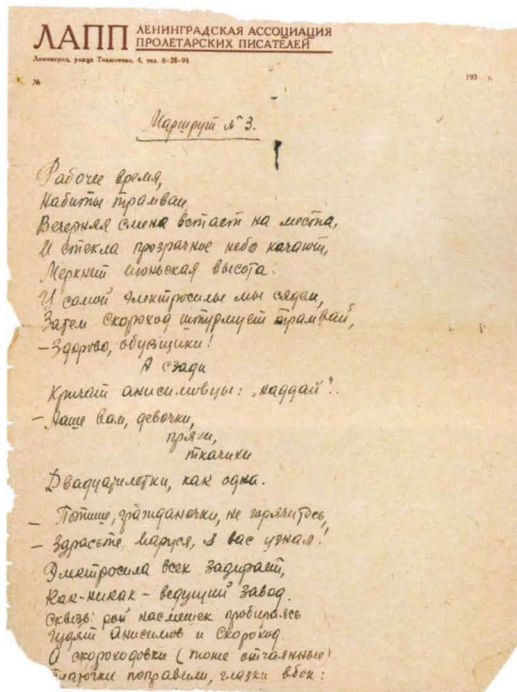 ЛАПП ЛЕНИНГРАДСКАЯ АССОЦИАЦИЯ
ПРОЛЕТАРСКИХ ПИСАТЕЛЕЙ
Ленинград, улица Тел. 6-28-94
№ 193 г.
Маршрут № 3.
Рабочее время,
Набиты трамваи
Вечерняя смена встает на места,
И стекла прозрачное небо качают,
Меркнет июньская высота.
У самой Электросилы мы сядем,
Затем Скороход штурмует трамвай,
– Здорово, обувщики!
А сзади
Кричат анисимовцы: „наддай"!..
– Наше Вам, девочки,
пряхи,
ткачихи
Двадцатилетки, как одна.
– Потише, гражданочки, не горячитесь,
– Здрасьте Маруся, я вас узнал!
Электросила всех задирает,
Как-никак – ведущий завод.
Сквозь рой насмешек пробираясь
Гудят Анисимов и Скороход.
А скороходовки (тоже отчаянные)
поправили, глазки вбок: